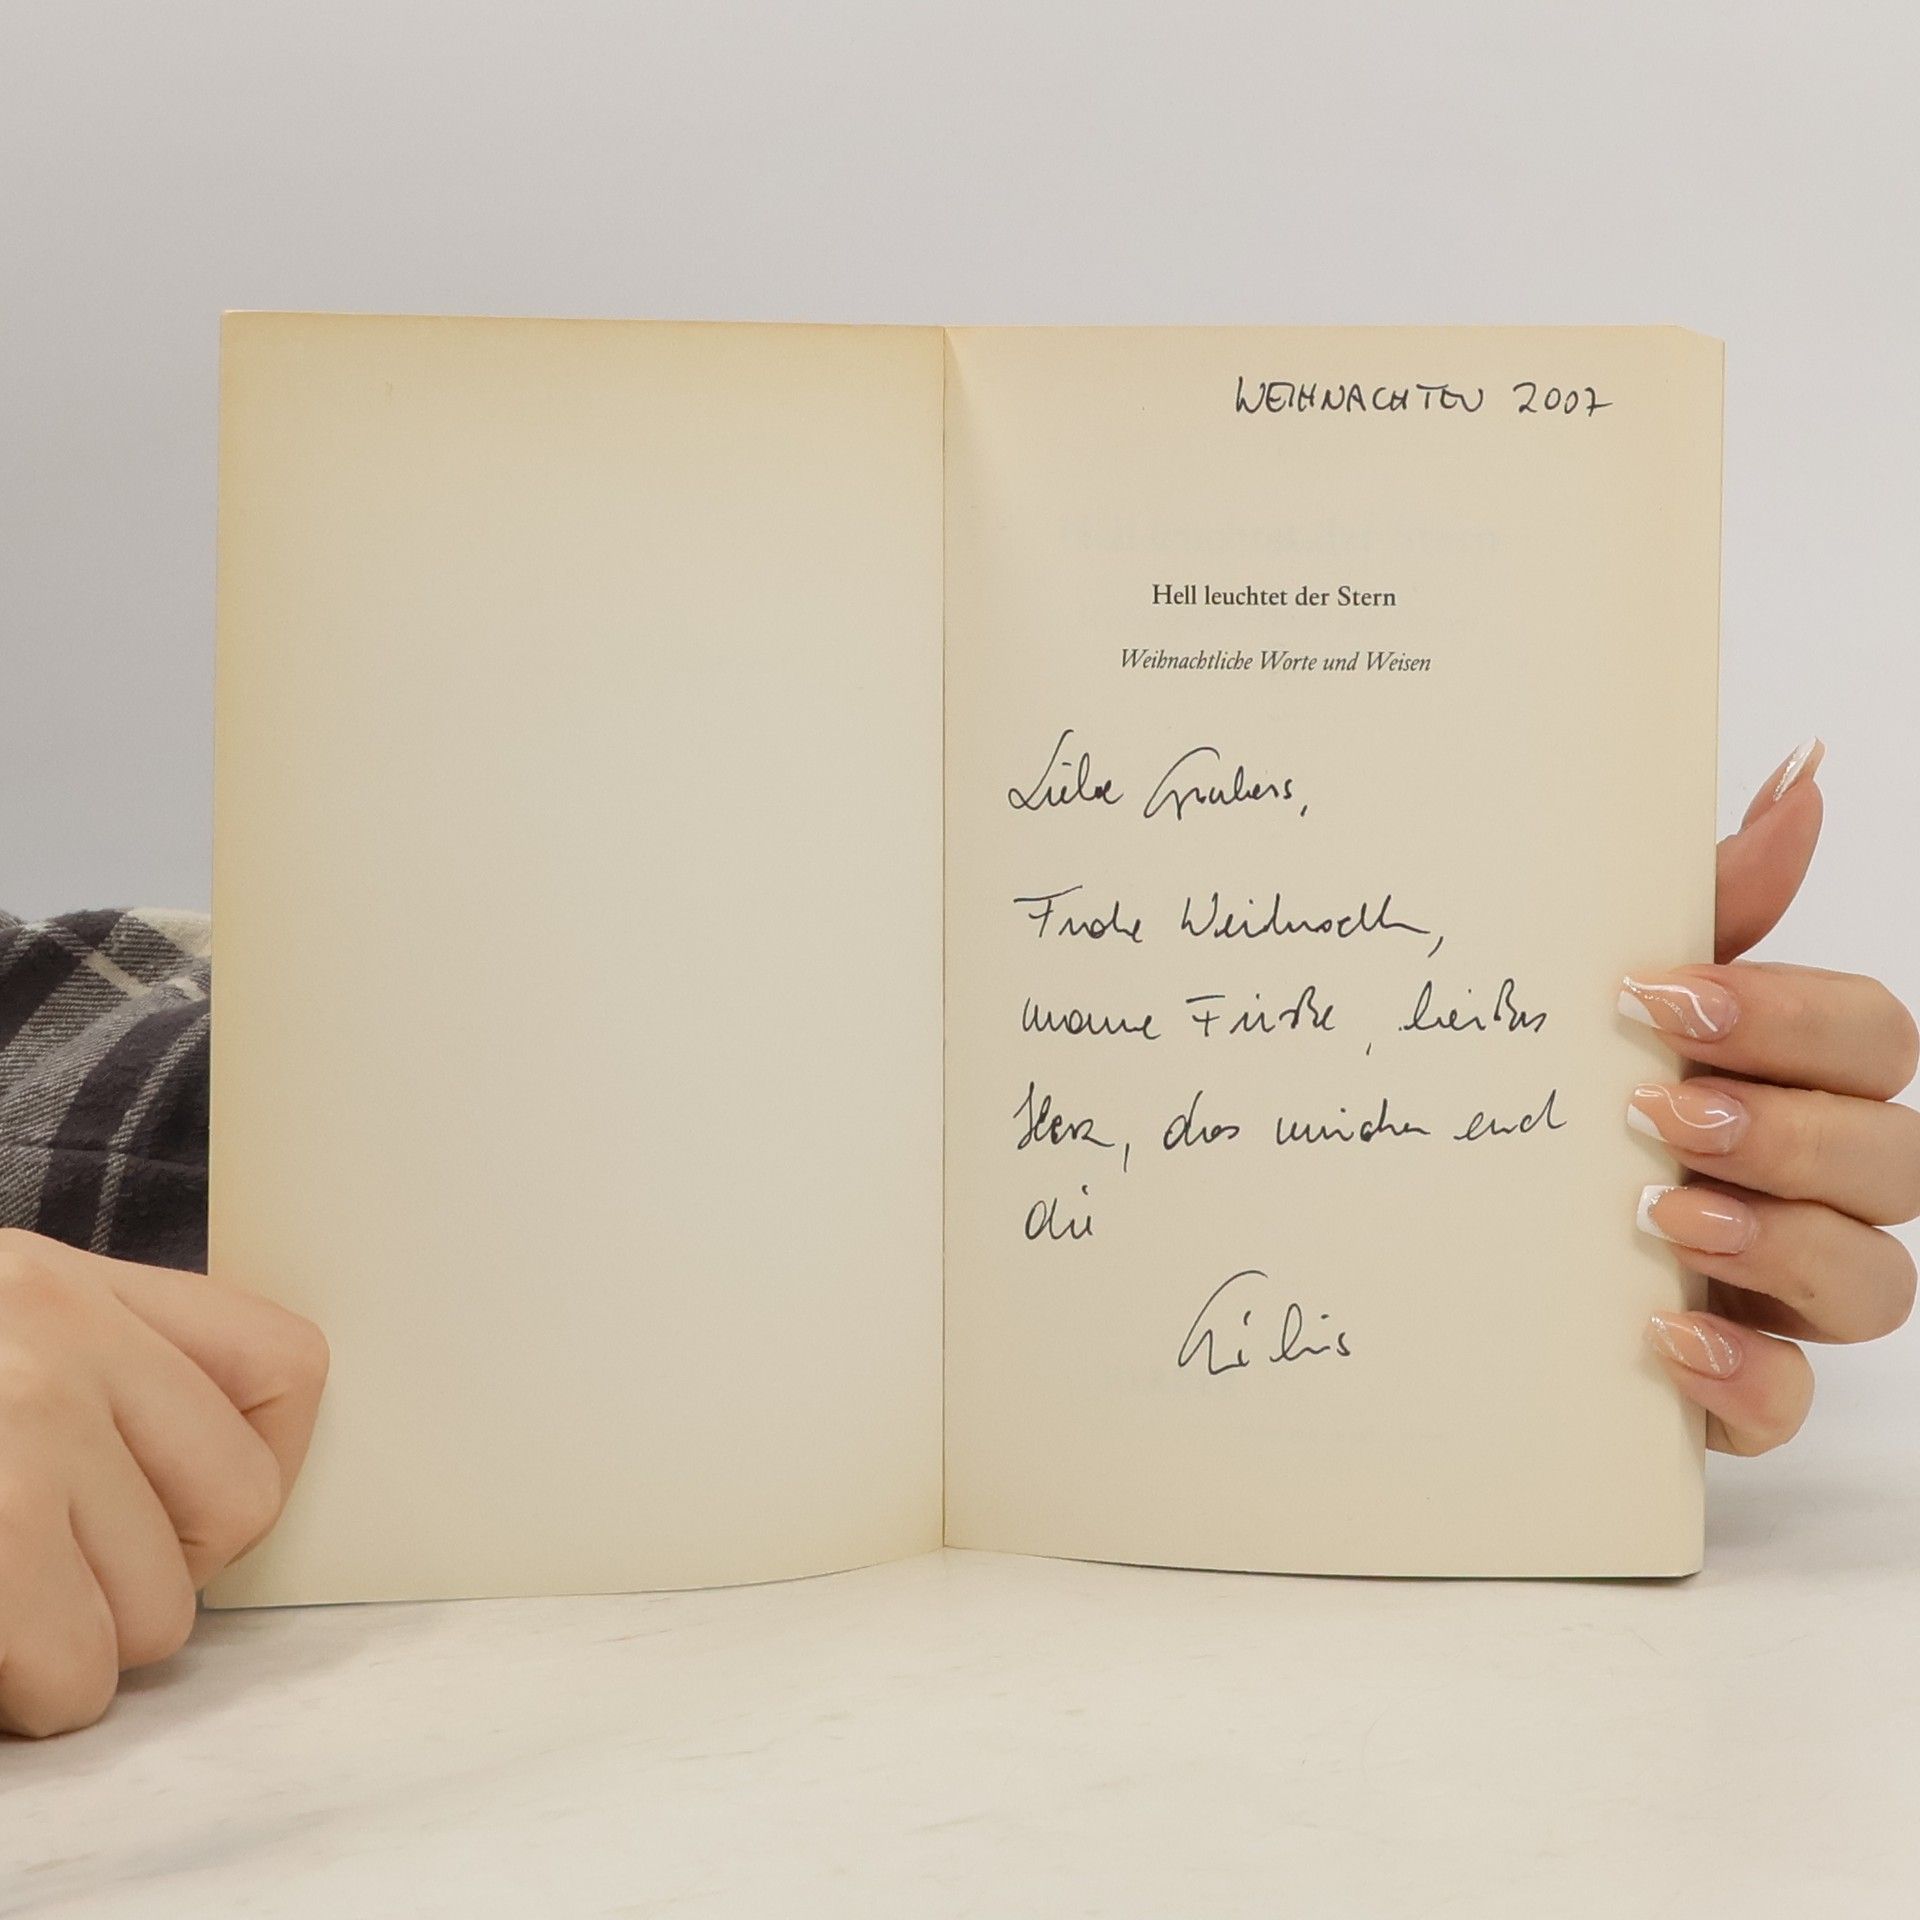 WEIHNACHTEN 2007
Hell leuchtet der Stern
Weihnachtliche Worte und Weisen
Liebe Grubers,
Frohe Weihnachten,
warme Füße, heißes
Herz, das wünschen euch
die